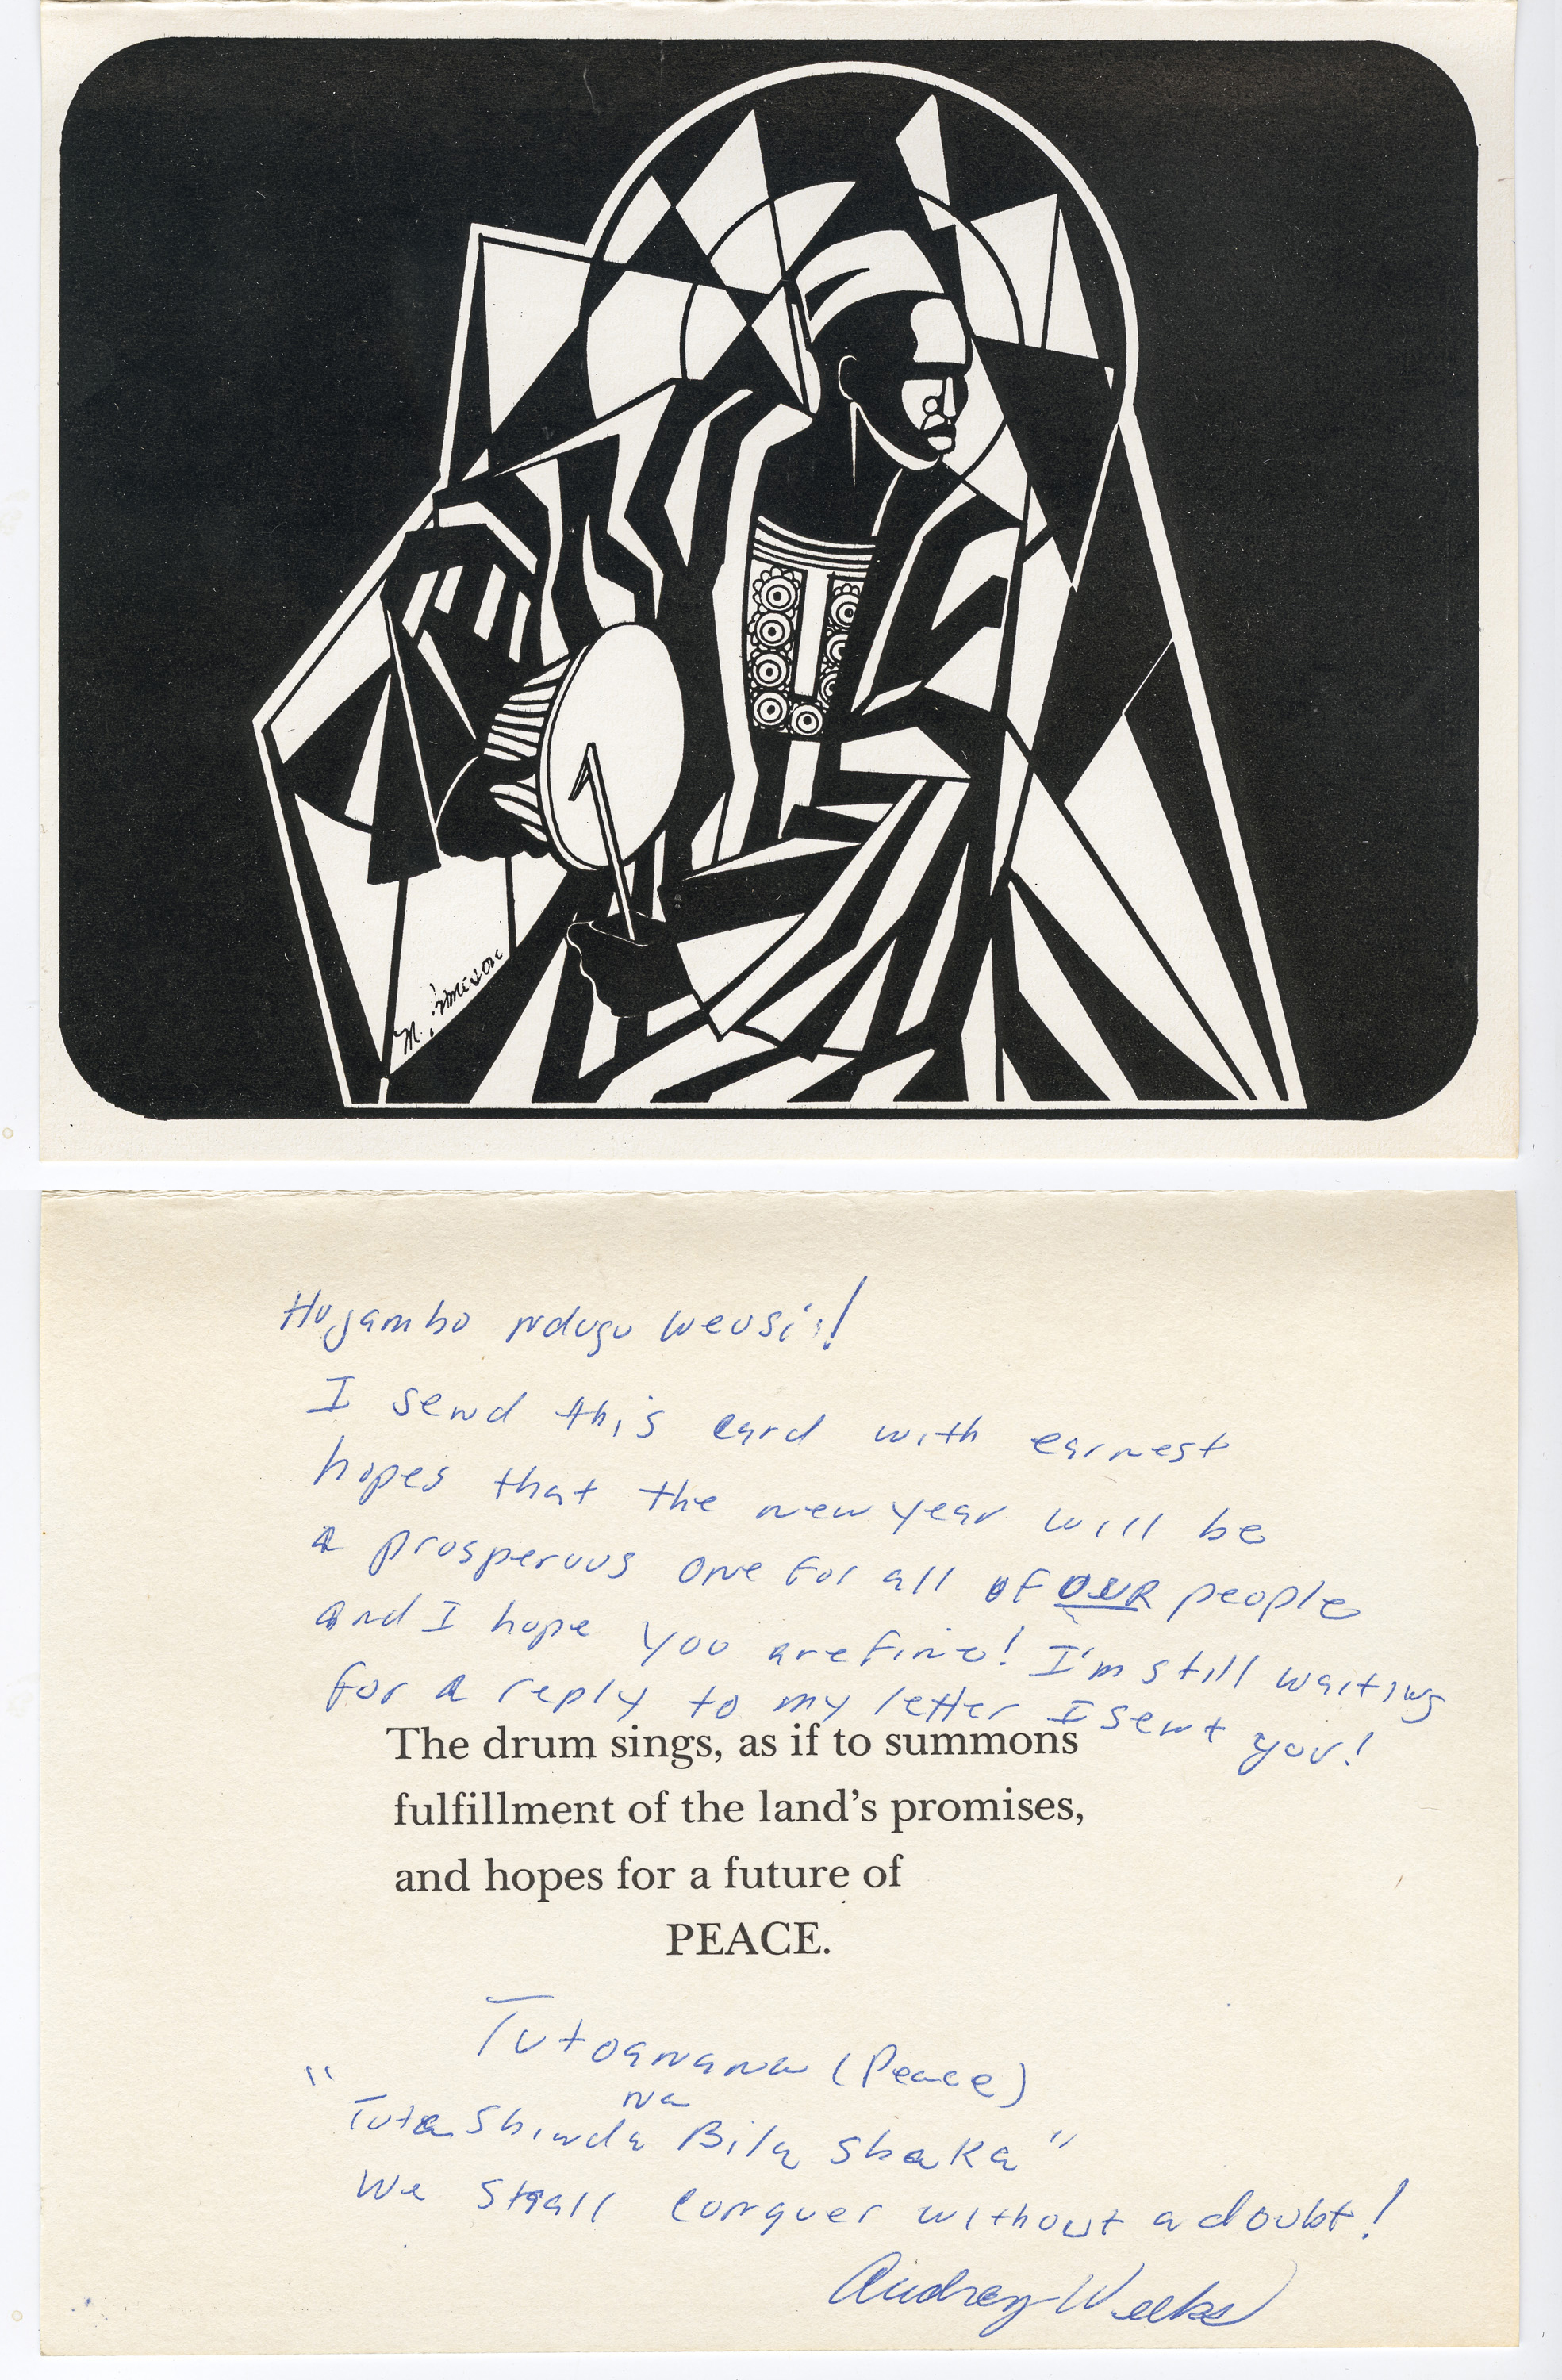 Hujambo Ndugu Weusi!!
I send this card with earnest
hopes that the new year will be
a prosperous one for all of OUR people
and I hope you are fine! I'm still waiting
for a reply to my letter I sent you!
The drum sings, as if to summons
fulfillment of the land's promises,
and hopes for a future of
PEACE.
Tutoanana (Peace)
"Tuta Shinda na Bila Shaka"
We Shall Conquer without a doubt!
Audrey Weeks